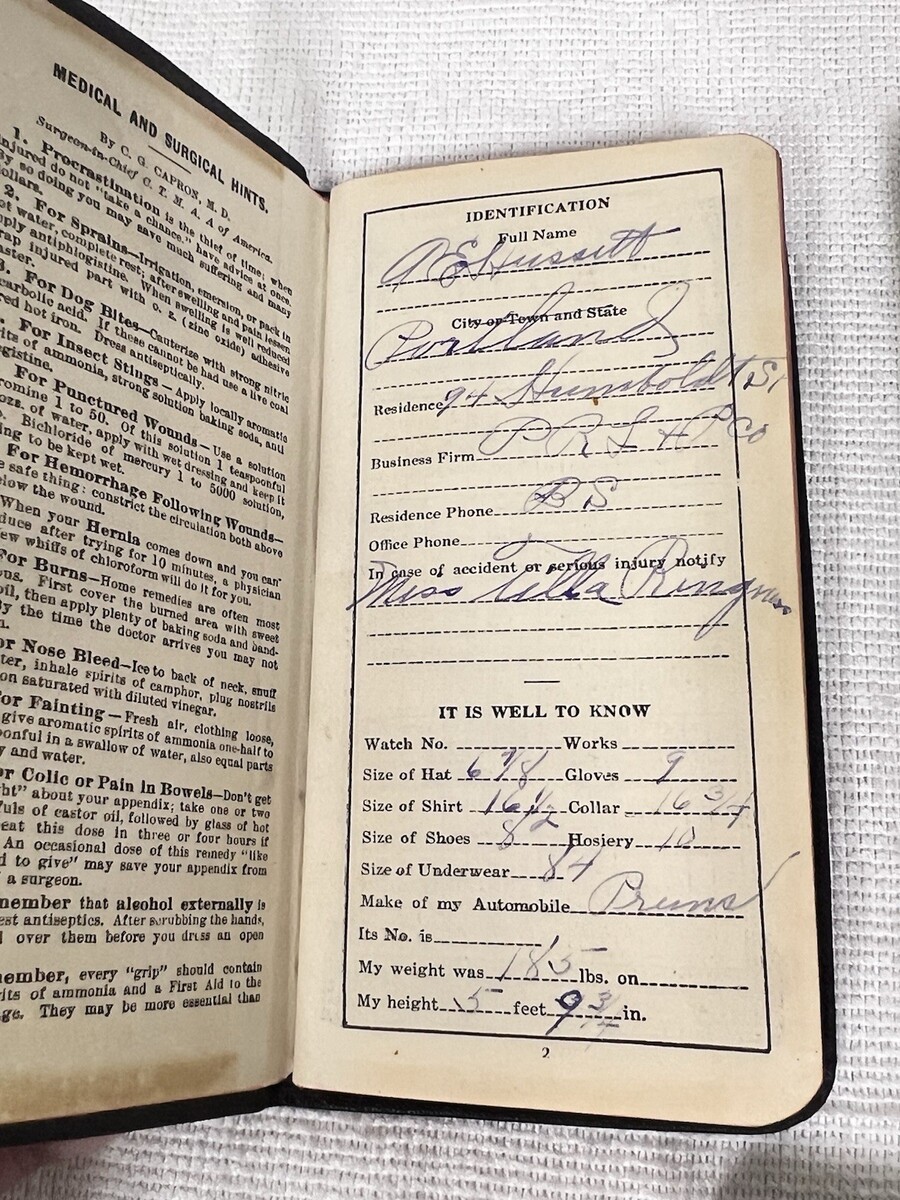 MEDICAL AND SURGICAL HINTS.
By C. G. CAPRON, M. D.
Surgeon-in-Chief C. T. M. A. A of America.
1. Procrastination is the thief of time; when
injured do not "take a chance," have advice at once.
By so doing you may save much suffering and many
dollars.
2. For Sprains—Irrigation, emersion, or pack in
hot water, complete rest; after swelling and pain lessen
apply antiphlogistine. When swelling is well reduced
wrap injured part with o. z. (zinc oxide) adhesive
plaster.
3. For Dog Bites—Cauterize with strong nitric
carbolic acid. If these cannot be had use a live coal
red hot iron. Dress antiseptically.
For Insect Stings—Apply locally aromatic
rits of ammonia, strong solution baking soda, anti
ogistine.
For Punctured Wounds—Use a solution
romine 1 to 50. Of this solution 1 teaspoonful
ozs. of water, apply with wet dressing and keep it
Bichloride of mercury 1 to 5000 solution,
ing to be kept wet.
For Hemorrhage Following Wounds—
e safe thing: constrict the circulation both above
elow the wound.
When your Hernia comes down and you can
duce after trying for 10 minutes, a physician
ew whiffs of chloroform will do it for you.
For Burns—Home remedies are often most
ous. First cover the burned area with sweet
oil, then apply plenty of baking soda and band-
By the time the doctor arrives you may not
n.
or Nose Bleed—Ice to back of neck, snuff
ter, inhale spirits of camphor, plug nostrils
on saturated with diluted vinegar.
or Fainting—Fresh air, clothing loose,
give aromatic spirits of ammonia one-half to
oonful in a swallow of water, also equal parts
y and water.
or Colic or Pain in Bowels—Don't get
ht" about your appendix; take one or two
fuls of castor oil, followed by glass of hot
eat this dose in three or four hours if
An occasional dose of this remedy "like
d to give" may save your appendix from
a surgeon.
member that alcohol externally is
est antiseptics. After scrubbing the hands,
l over them before you dress an open
member, every "grip" should contain
rits of ammonia and a First Aid to the
ge. They may be more essential than
IDENTIFICATION
Full Name
A E Hussett
City or Town and State
Portland
Residence 94 Humboldt St
Business Firm P R L & P Co
Residence Phone B S
Office Phone
In case of accident or serious injury notify
Miss Tilla Ringness
IT IS WELL TO KNOW
Watch No. Works
Size of Hat 6 7/8 Gloves 9
Size of Shirt 16 1/2 Collar 16 3/4
Size of Shoes 8 Hosiery 10
Size of Underwear 84
Make of my Automobile
Its No. is
My weight was 185 lbs. on
My height 5 feet 9 3/4 in.
2